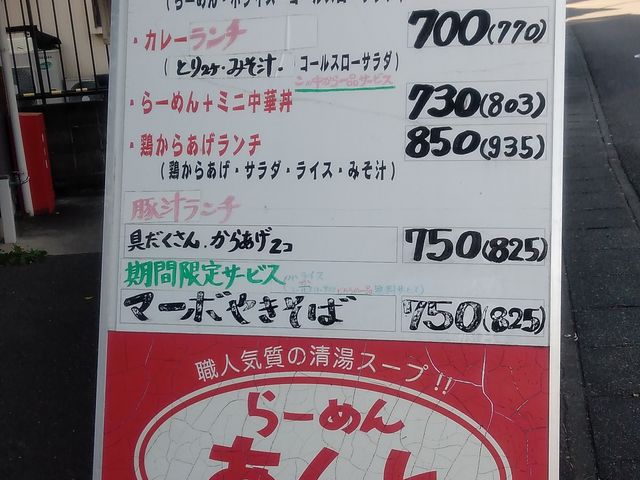 (らーめん・ ライス・コールスローサラダ)
・カレーランチ 700(770)
(とりスープ・みそ汁・コールスローサラダ)
この中から一品サービス
・らーめん+ミニ中華丼 730(803)
・鶏からあげランチ 850(935)
(鶏からあげ・サラダ・ライス・みそ汁)
豚汁ランチ
具だくさん、からあげ2コ 750(825)
期間限定サービス
ライス
マーボやきそば 750(825)
職人気質の清湯スープ!!
らーめん